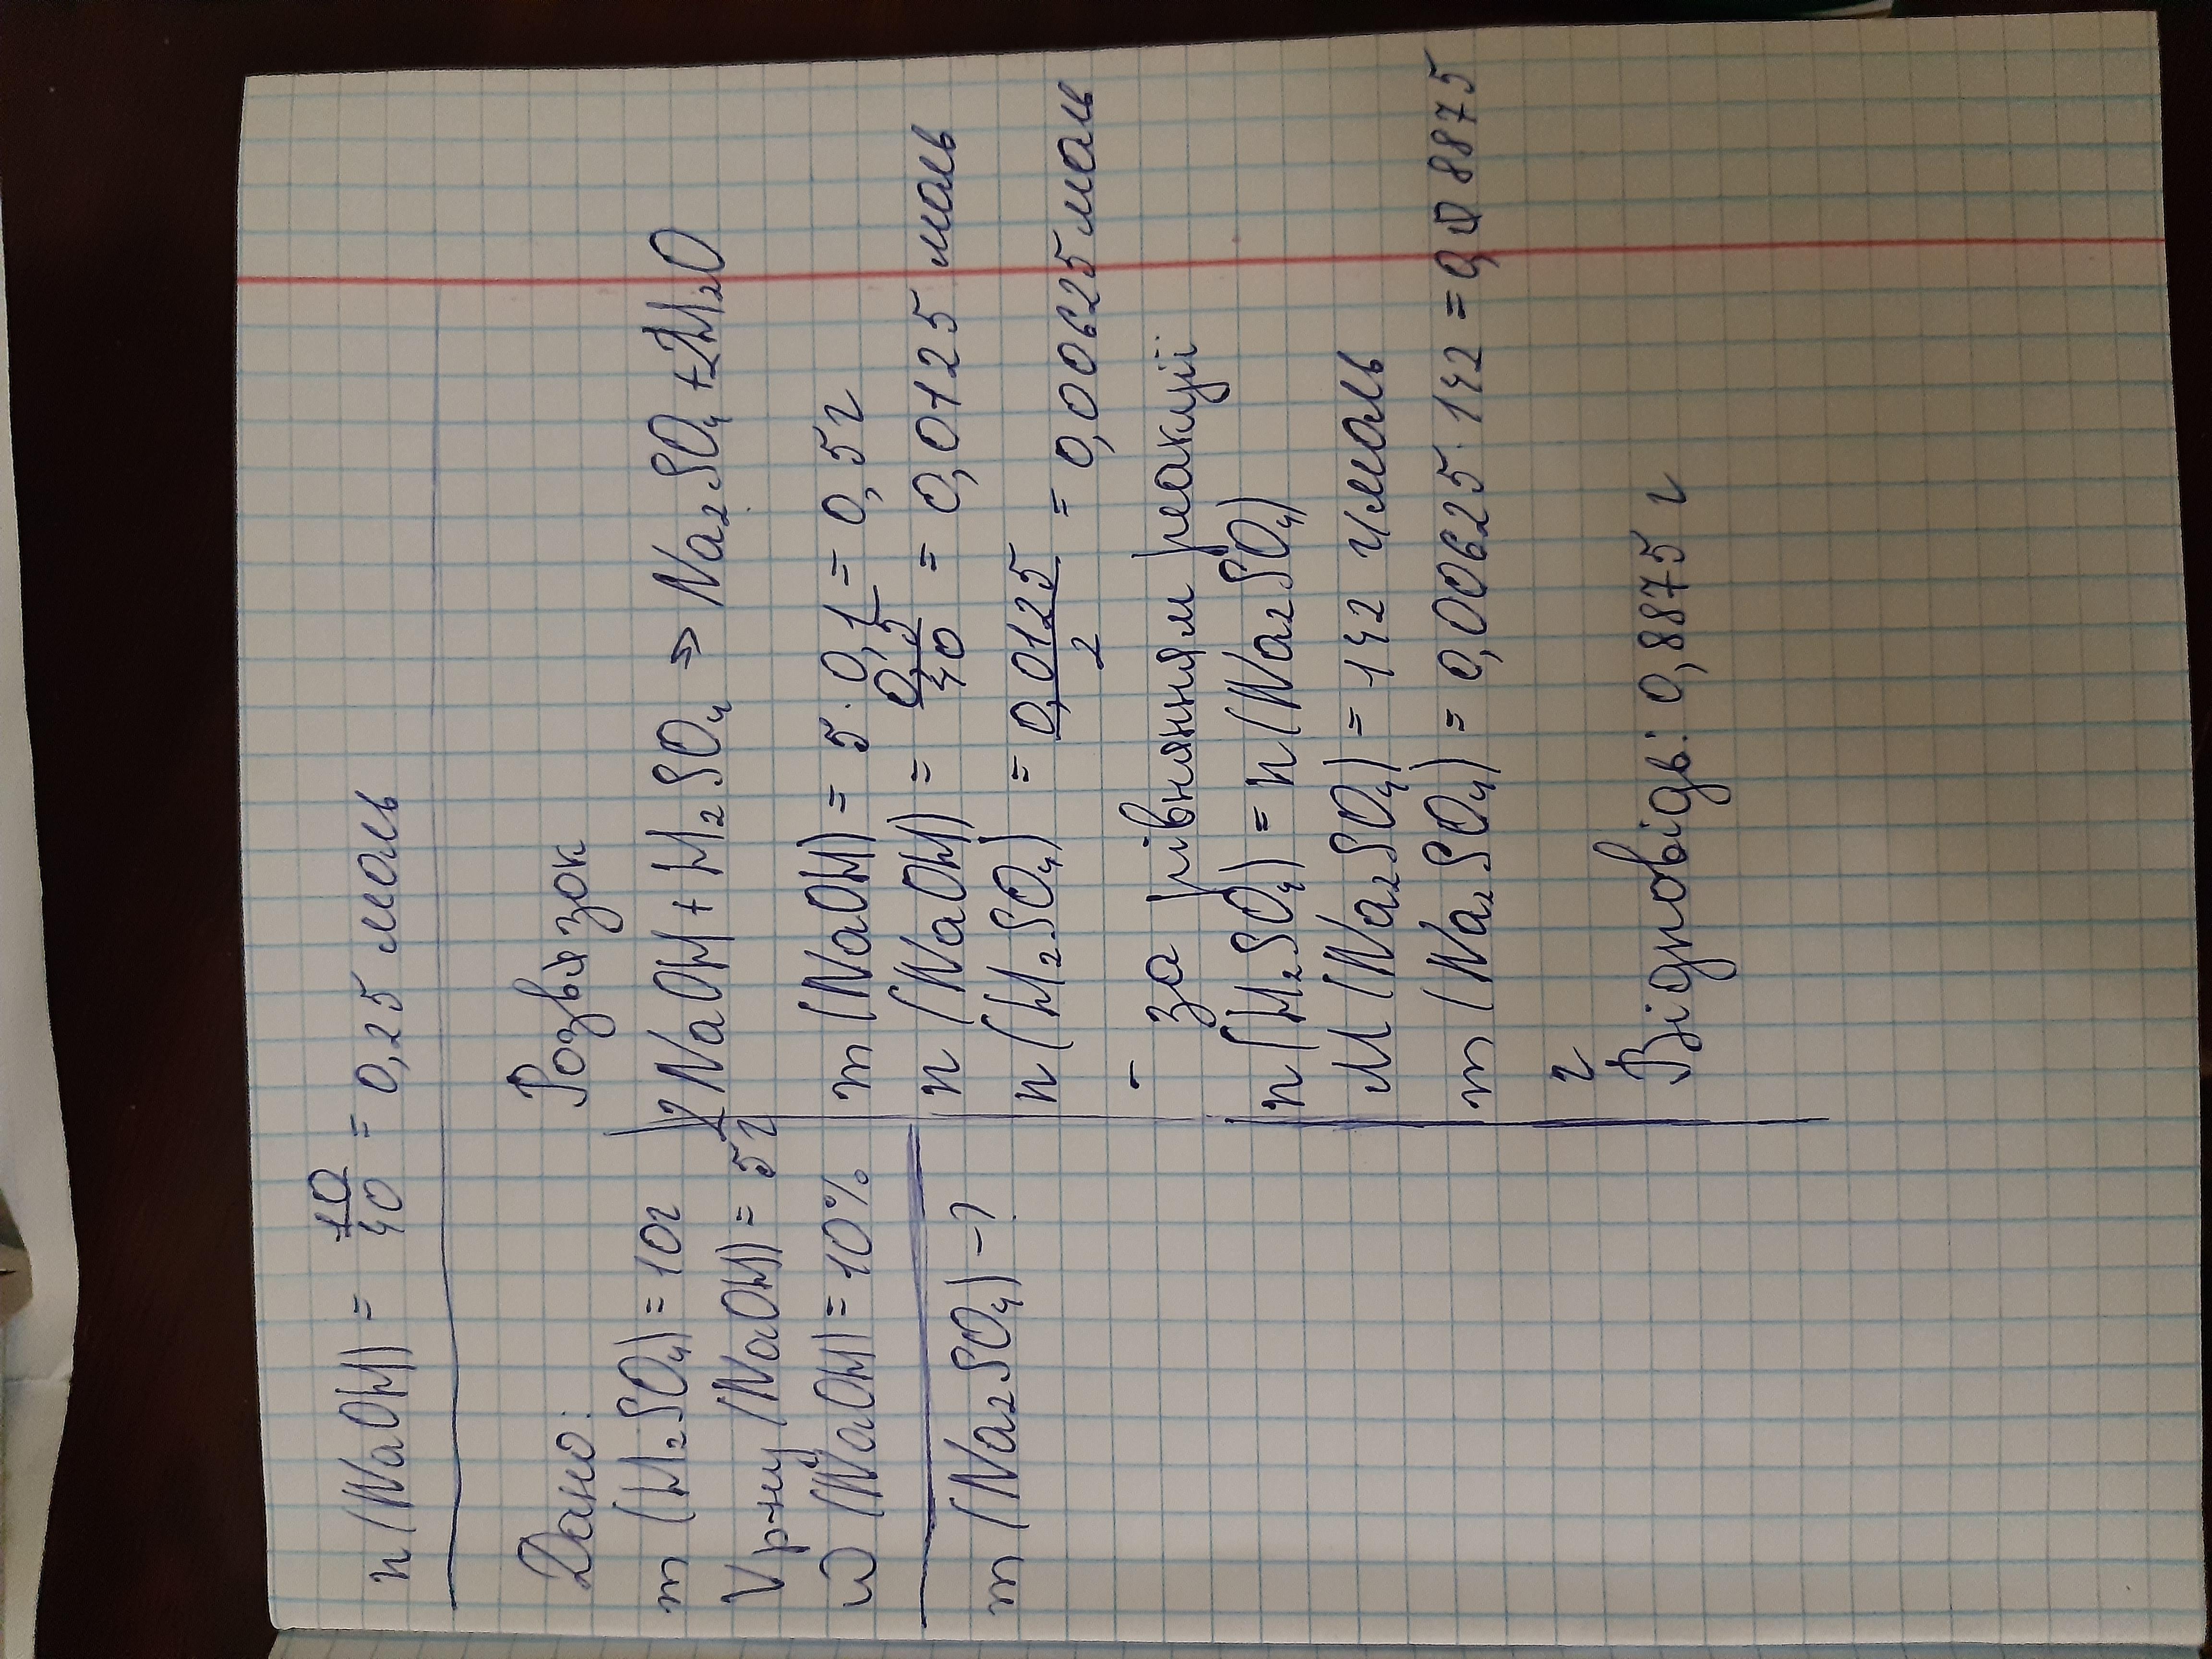 n (NaOH) = 10/40 = 0,25 моль
Дано:
m (H₂SO₄) = 10г
Vр-ну (NaOH) = 5г
ω (NaOH) = 10%
m (Na₂SO₄) - ?
Розв'язок
2NaOH + H₂SO₄ => Na₂SO₄ + 2H₂O
m (NaOH) = 5 · 0,1 = 0,5г
n (NaOH) = 0,5/40 = 0,0125 моль
n (H₂SO₄) = 0,0125/2 = 0,00625 моль
- за рівнянням реакції
n (H₂SO₄) = n (Na₂SO₄)
M (Na₂SO₄) = 142 г/моль
m (Na₂SO₄) = 0,00625 · 142 = 0,8875
г
Відповідь: 0,8875 г